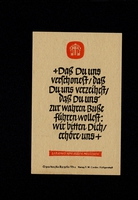 +Daß Du uns
verschonest/daß
Du uns verzeihest/
daß Du uns
zur wahren Buße
führen wollest:
wir bitten Dich/
erhöre uns+